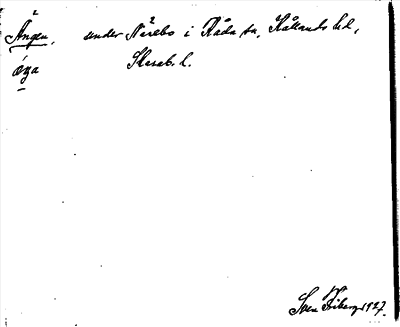 Ängen, under Närebo i Råda sn, Kållands hd,
Skarab. l.
äŋa
Sven Friberg 1927.